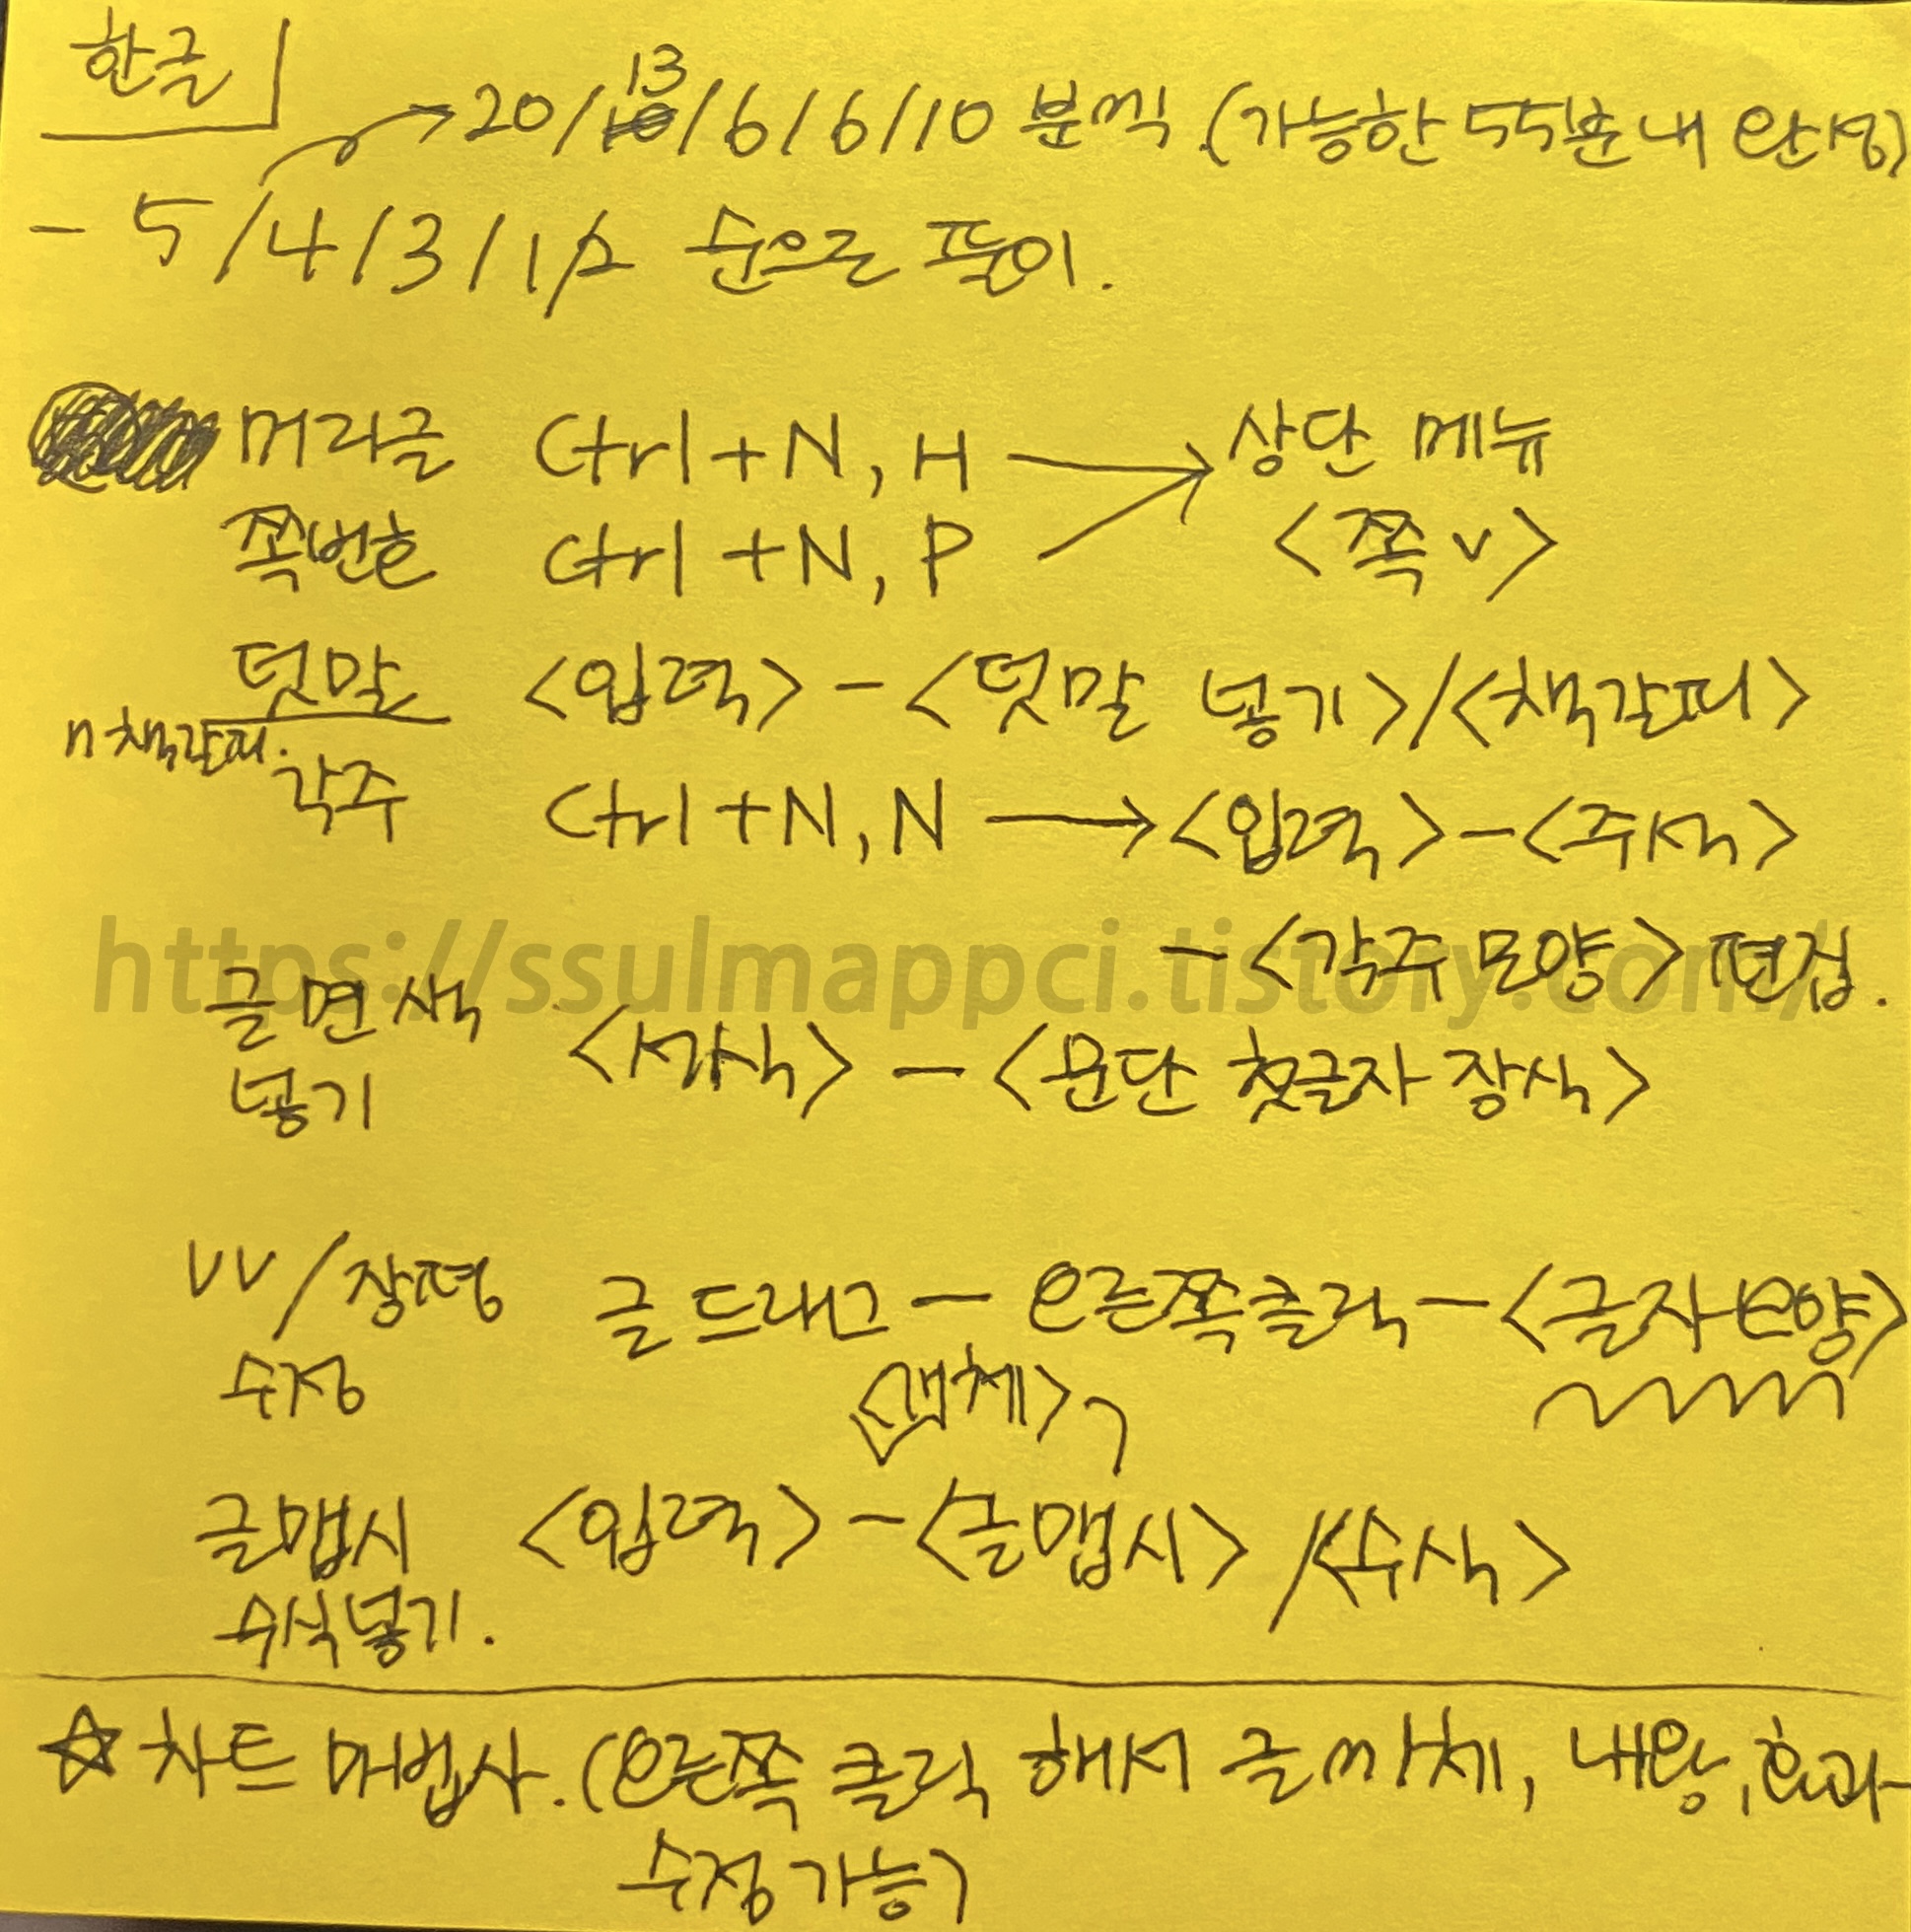 한글
13
20/10/6/6/10 분씩 (가능한 55분내 완성)
- 5/4/3/1/2 순으로 풀이.
머리글 Ctrl+N, H → 상단 메뉴
쪽번호 Ctrl+N, P <쪽 v>
덧말 <입력>-<덧말 넣기>/<책갈피>
n 책갈피.
각주 Ctrl+N, N → <입력>-<주석>
-<각주 모양> 편집.
https://ssulmappci.tistory.com/
글면색 넣기 <서식>-<문단 첫글자 장식>
VV/장평 수정 글 드래그 - 오른쪽클릭 -<글자모양>
글맵시 <입력>-<글맵시>/<수식>
수식넣기.
☆ 차트 마법사. (오른쪽 클릭 해서 글씨체, 내용, 효과
수정 가능)